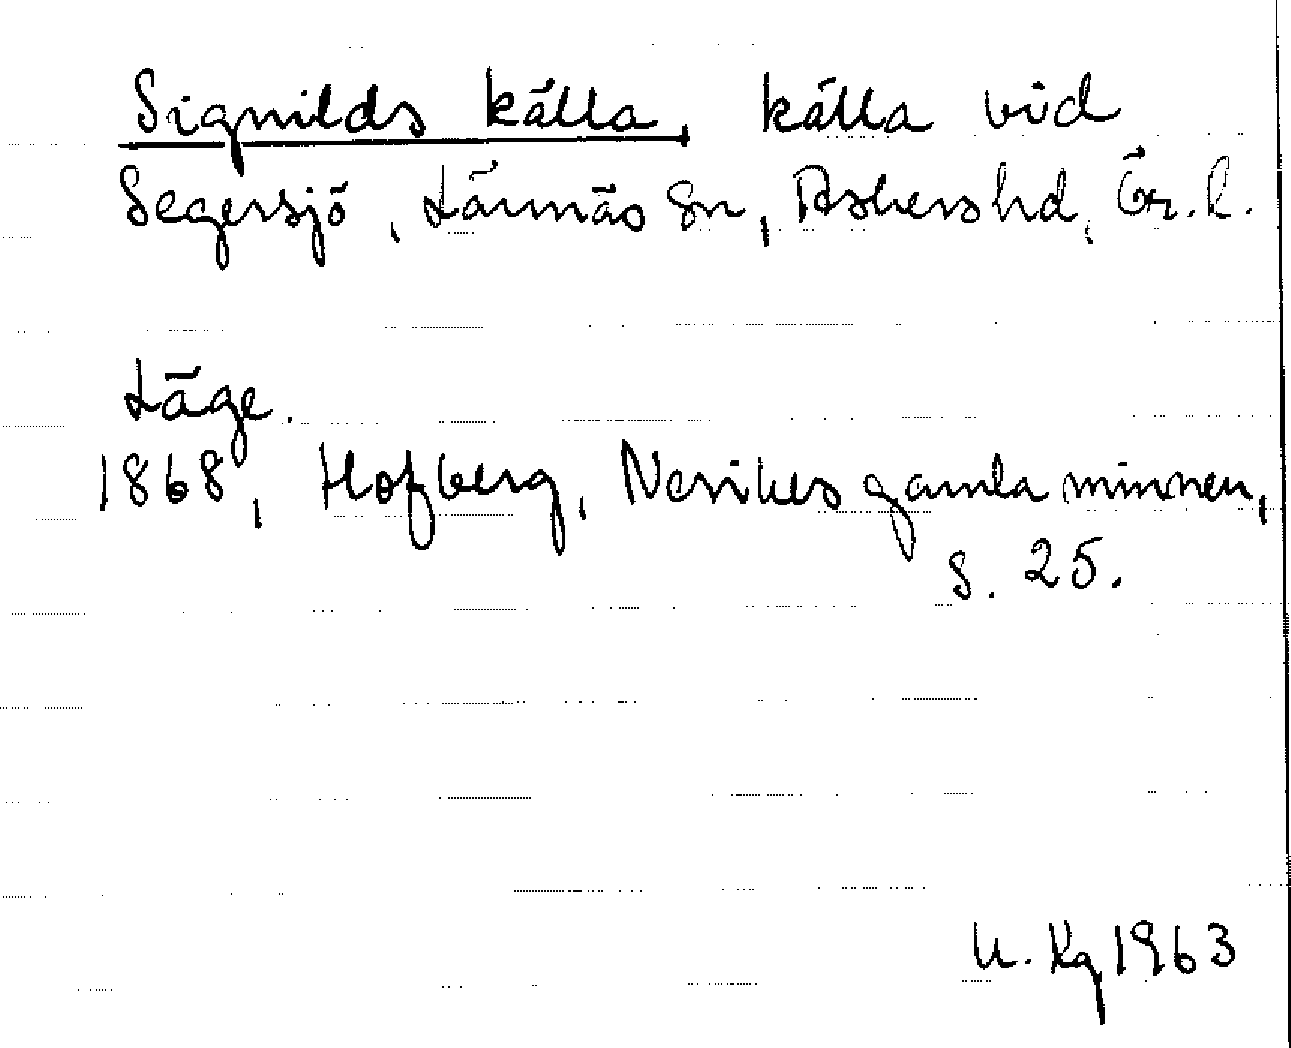 Signilds källa, källa vid
Segersjö, Lännäs sn, Askers hd, Ör. l.
Läge.
1868, Hofberg, Nerikes gamla minnen,
s. 25.
U. Kg 1963